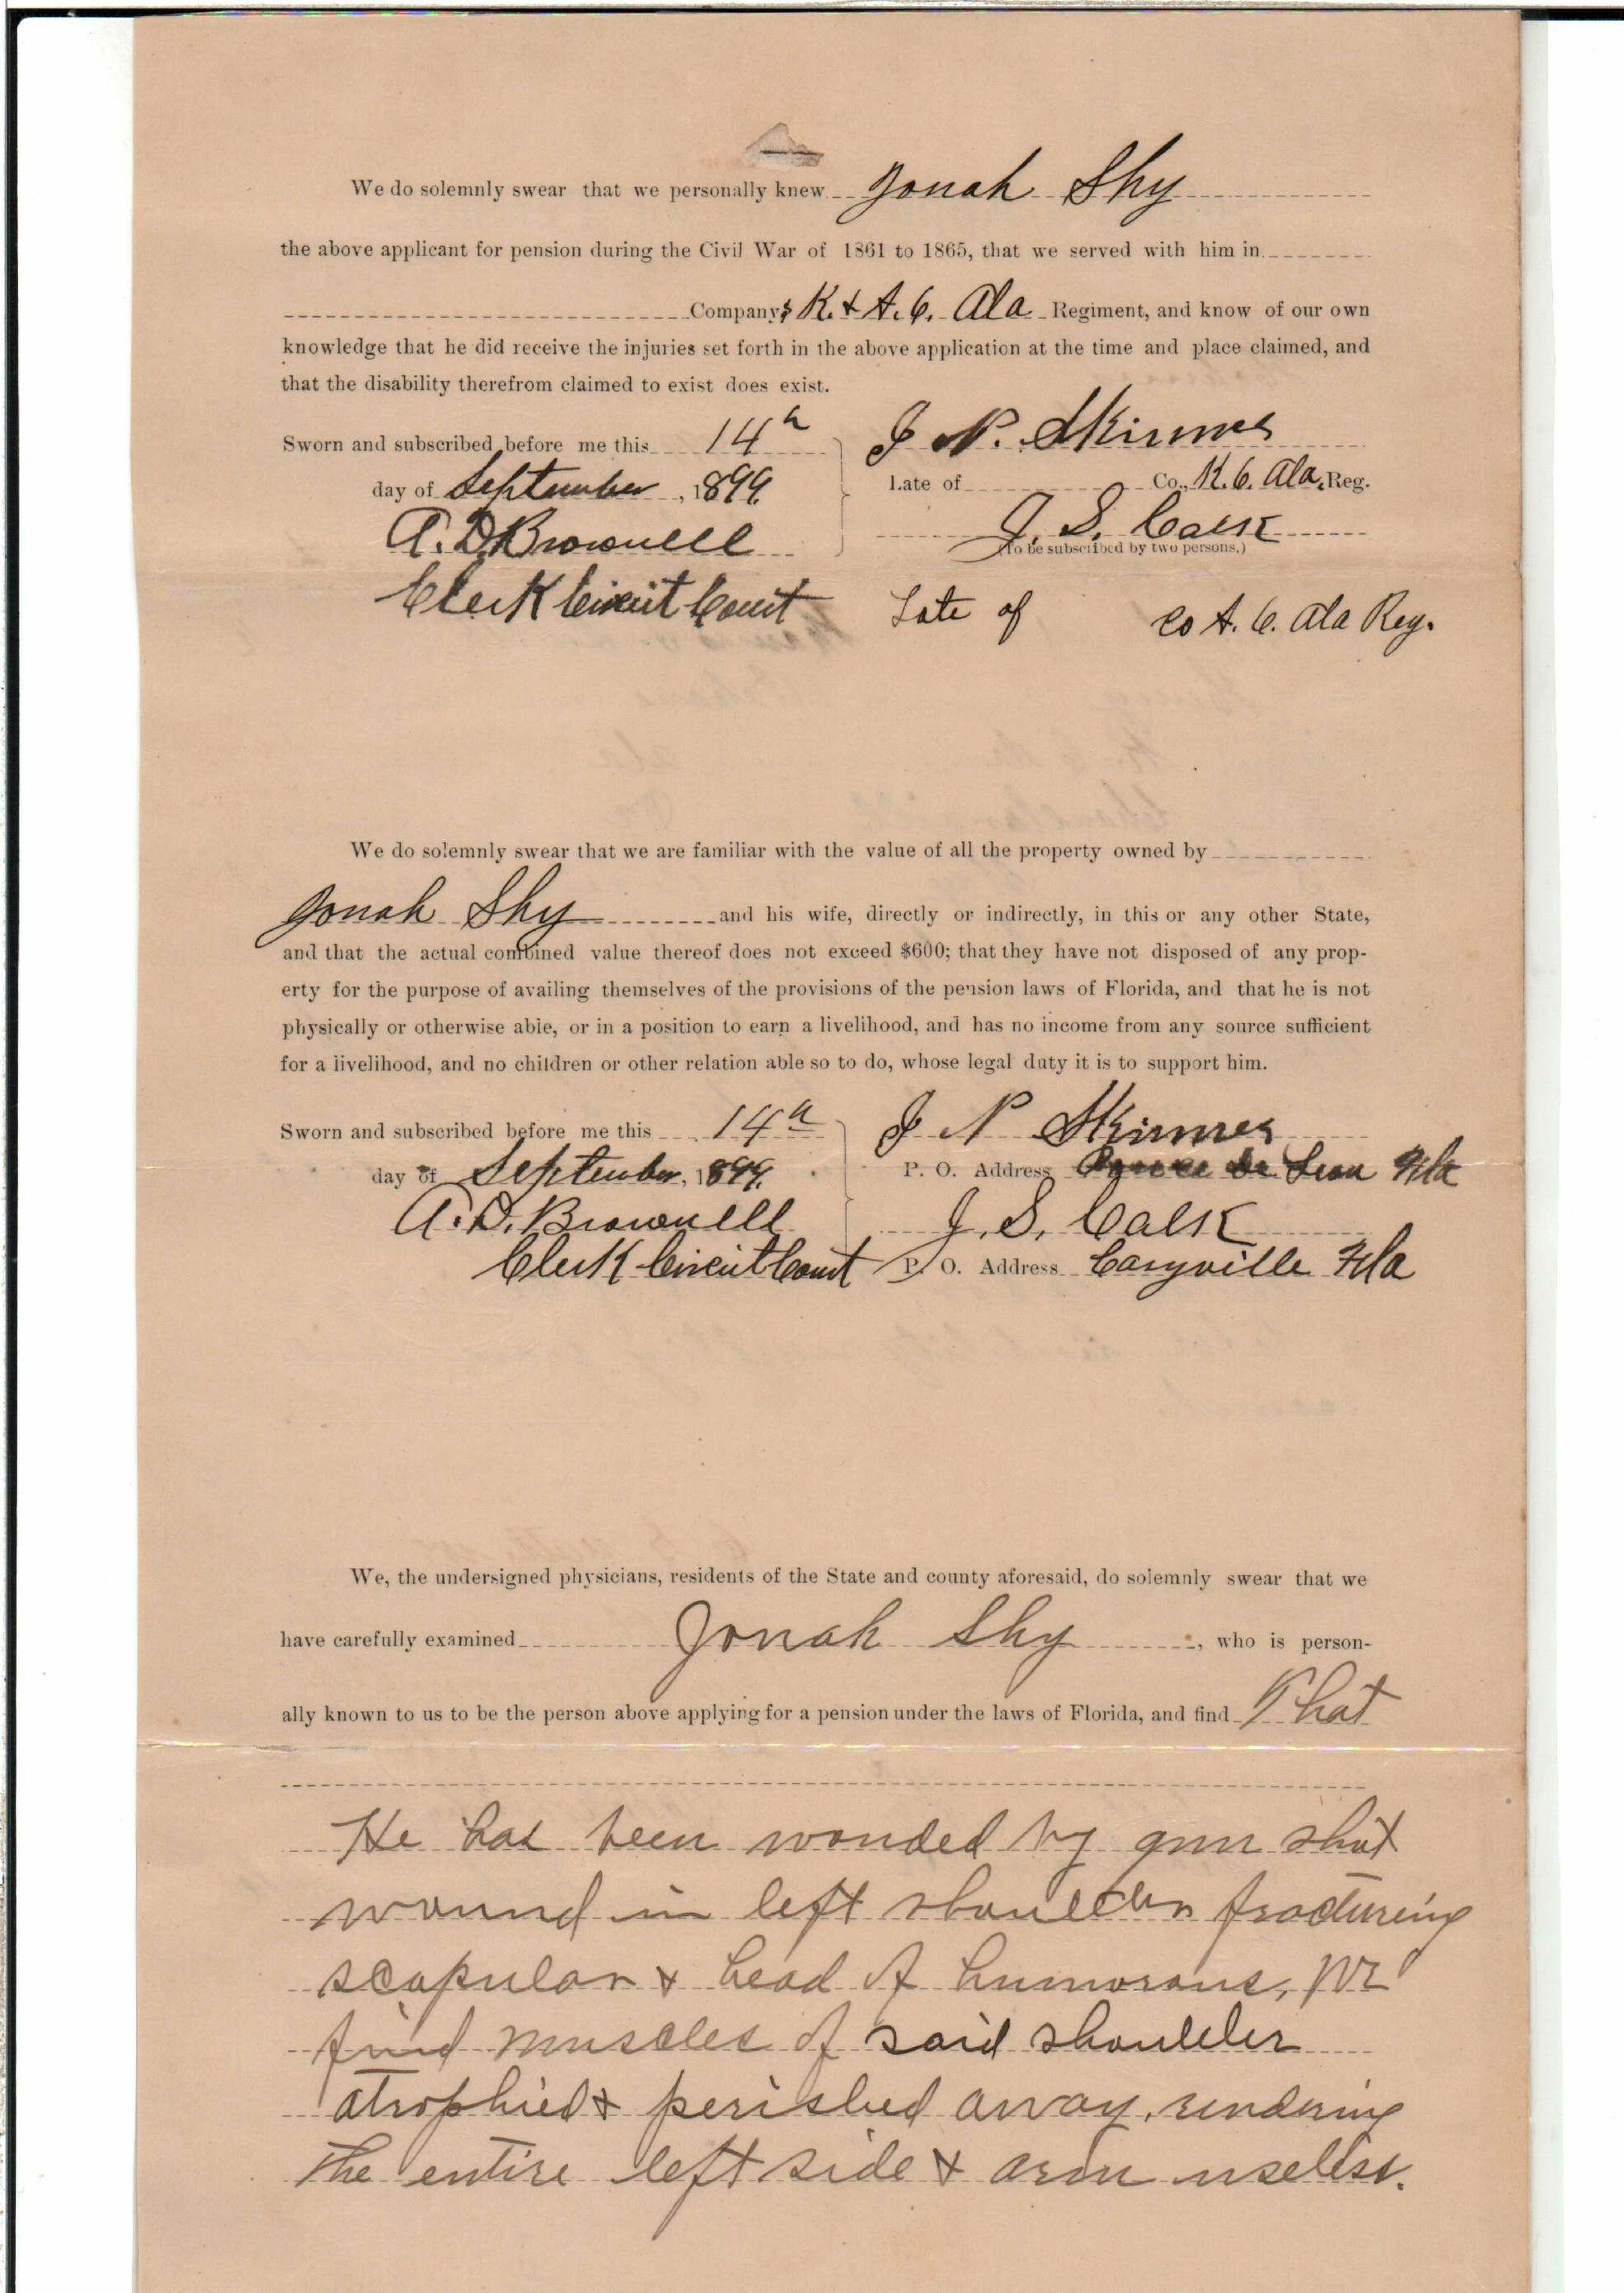 We do solemnly swear that we personally knew Jonah Shy
the above applicant for pension during the Civil War of 1861 to 1865, that we served with him in
Companys K. & A. 6. Ala Regiment, and know of our own
knowledge that he did receive the injuries set forth in the above application at the time and place claimed, and
that the disability therefrom claimed to exist does exist.
Sworn and subscribed before me this 14th J N. Skinner
day of September, 1899. Late of Co., K. 6. Ala. Reg.
A. D. Brownell J. S. Calk
(To be subscribed by two persons.)
Clerk Circuit Court Late of Co A. 6. Ala Reg.
We do solemnly swear that we are familiar with the value of all the property owned by
Jonah Shy and his wife, directly or indirectly, in this or any other State,
and that the actual combined value thereof does not exceed $600; that they have not disposed of any prop-
erty for the purpose of availing themselves of the provisions of the pension laws of Florida, and that he is not
physically or otherwise able, or in a position to earn a livelihood, and has no income from any source sufficient
for a livelihood, and no children or other relation able so to do, whose legal duty it is to support him.
Sworn and subscribed before me this 14th J N Skinner
day of September, 1899. P. O. Address Ponce de Leon Fla
A. D. Brownell J. S. Calk
Clerk Circuit Court P. O. Address Caryville Fla
We, the undersigned physicians, residents of the State and county aforesaid, do solemnly swear that we
have carefully examined Jonah Shy, who is person-
ally known to us to be the person above applying for a pension under the laws of Florida, and find That
He has been wonded by gun shot
wound in left shoulder fracturing
scapular & head of humorous, We
find muscles of said shoulder
atrophied & perished away, rendering
the entire left side & arm useless.